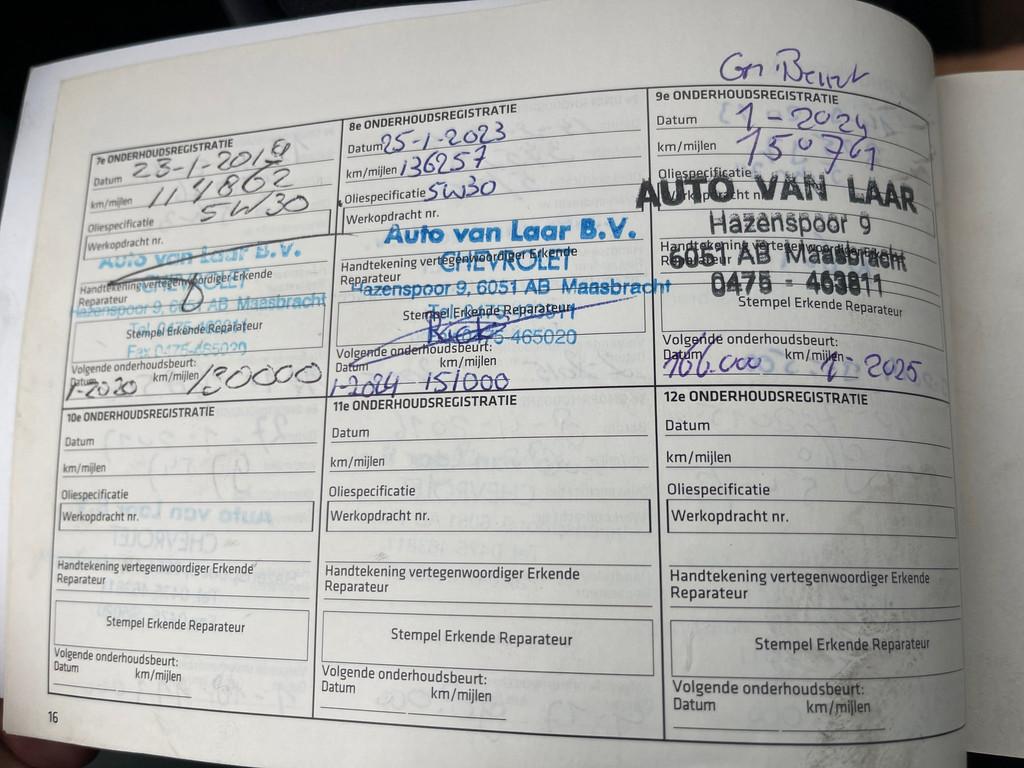 7e ONDERHOUDSREGISTRATIE
Datum 23-1-201
km/mijlen 114862
Oliespecificatie 5W30
Werkopdracht nr.
Auto van Laar B.V.
Handtekening vertegenwoordiger Erkende
Reparateur
Hazenspoor 9, 6051 AB Maasbracht
Stempel Erkende Reparateur
Fax 0475-465020
Volgende onderhoudsbeurt:
Datum km/mijlen
1-2020 130000
8e ONDERHOUDSREGISTRATIE
Datum 25-1-2023
km/mijlen 136257
Oliespecificatie 5W30
Werkopdracht nr.
Auto van Laar B.V.
CHEVROLET
Handtekening vertegenwoordiger Erkende
Reparateur
Hazenspoor 9, 6051 AB Maasbracht
Stempel Erkende Reparateur
465020
Volgende onderhoudsbeurt:
Datum km/mijlen
1-2024 151000
Gr. Beurt
9e ONDERHOUDSREGISTRATIE
Datum 1-2024
km/mijlen 150761
Oliespecificatie
AUTO VAN LAAR
Werkopdracht nr.
Hazenspoor 9
Handtekening vertegenwoordiger Erkende
6051 AB Maasbracht
0475 - 463811
Stempel Erkende Reparateur
Volgende onderhoudsbeurt:
Datum km/mijlen
166.000 1-2025
10e ONDERHOUDSREGISTRATIE
Datum
km/mijlen
Oliespecificatie
Werkopdracht nr.
Handtekening vertegenwoordiger Erkende
Reparateur
Stempel Erkende Reparateur
Volgende onderhoudsbeurt:
Datum km/mijlen
11e ONDERHOUDSREGISTRATIE
Datum
km/mijlen
Oliespecificatie
Werkopdracht nr.
Handtekening vertegenwoordiger Erkende
Reparateur
Stempel Erkende Reparateur
Volgende onderhoudsbeurt:
Datum km/mijlen
12e ONDERHOUDSREGISTRATIE
Datum
km/mijlen
Oliespecificatie
Werkopdracht nr.
Handtekening vertegenwoordiger Erkende
Reparateur
Stempel Erkende Reparateur
Volgende onderhoudsbeurt:
Datum km/mijlen
16